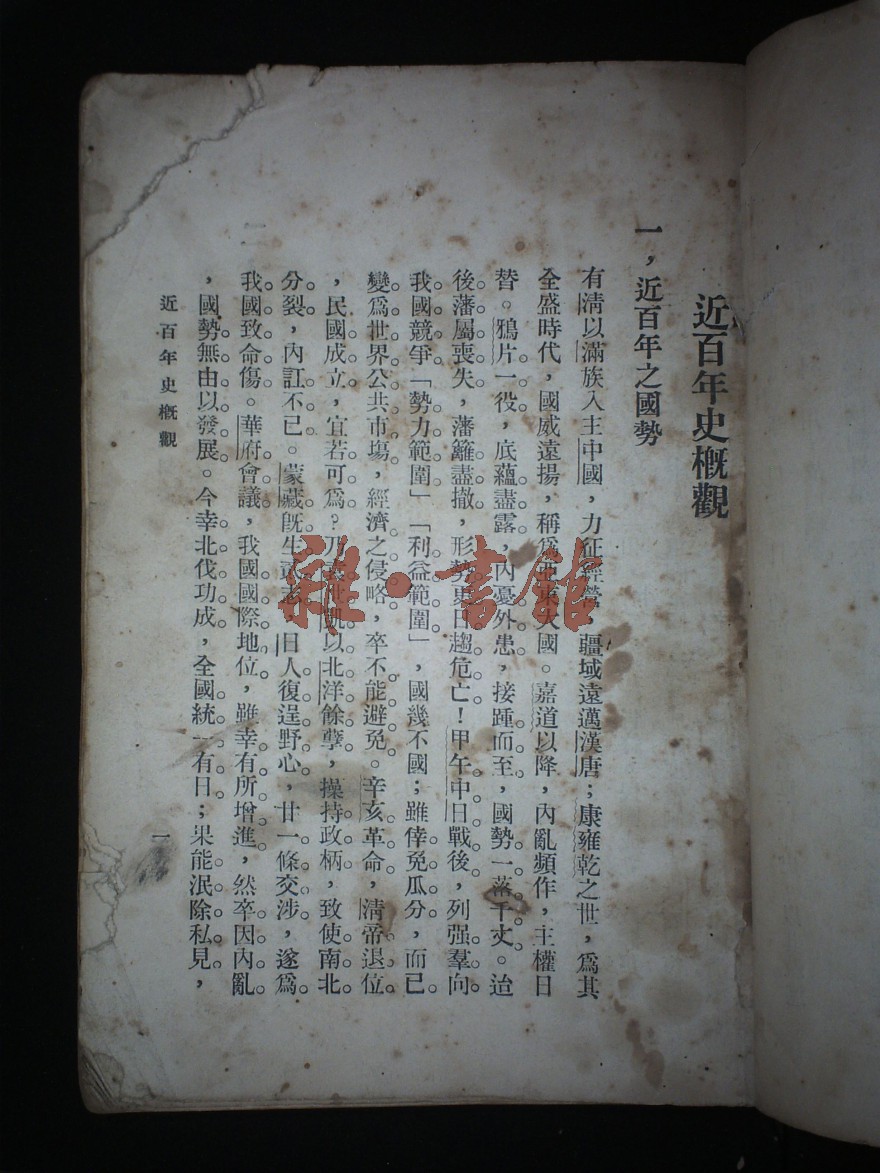 近百年史槪觀
一，近百年之國勢
有淸以滿族入主中國，力征經營，疆域遠邁漢唐；康雍乾之世，爲其
全盛時代，國威遠揚，稱爲亞東大國。嘉道以降，內亂頻作，主權日
替。鴉片一役，底蘊盡露，內憂外患，接踵而至，國勢一落千丈。迨
後藩屬喪失，藩籬盡撤，形勢更日趨危亡！甲午中日戰後，列强羣向
我國競爭「勢力範圍」「利益範圍」，國幾不國；雖倖免瓜分，而已
變爲世界公共市場，經濟之侵略，卒不能避免。辛亥革命，淸帝退位
，民國成立，宜若可爲？乃袁世凱以北洋餘孽，操持政柄，致使南北
分裂，內訌不已。蒙藏旣生貳志，日人復逞野心，廿一條交涉，遂爲
我國致命傷。華府會議，我國國際地位，雖幸有所增進，然卒因內亂
，國勢無由以發展。今幸北伐功成，全國統一有日；果能泯除私見，
近百年史槪觀
一
雜·書館